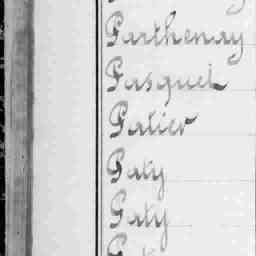 Parthenay
Pasquet
Patier
Paty
Paty